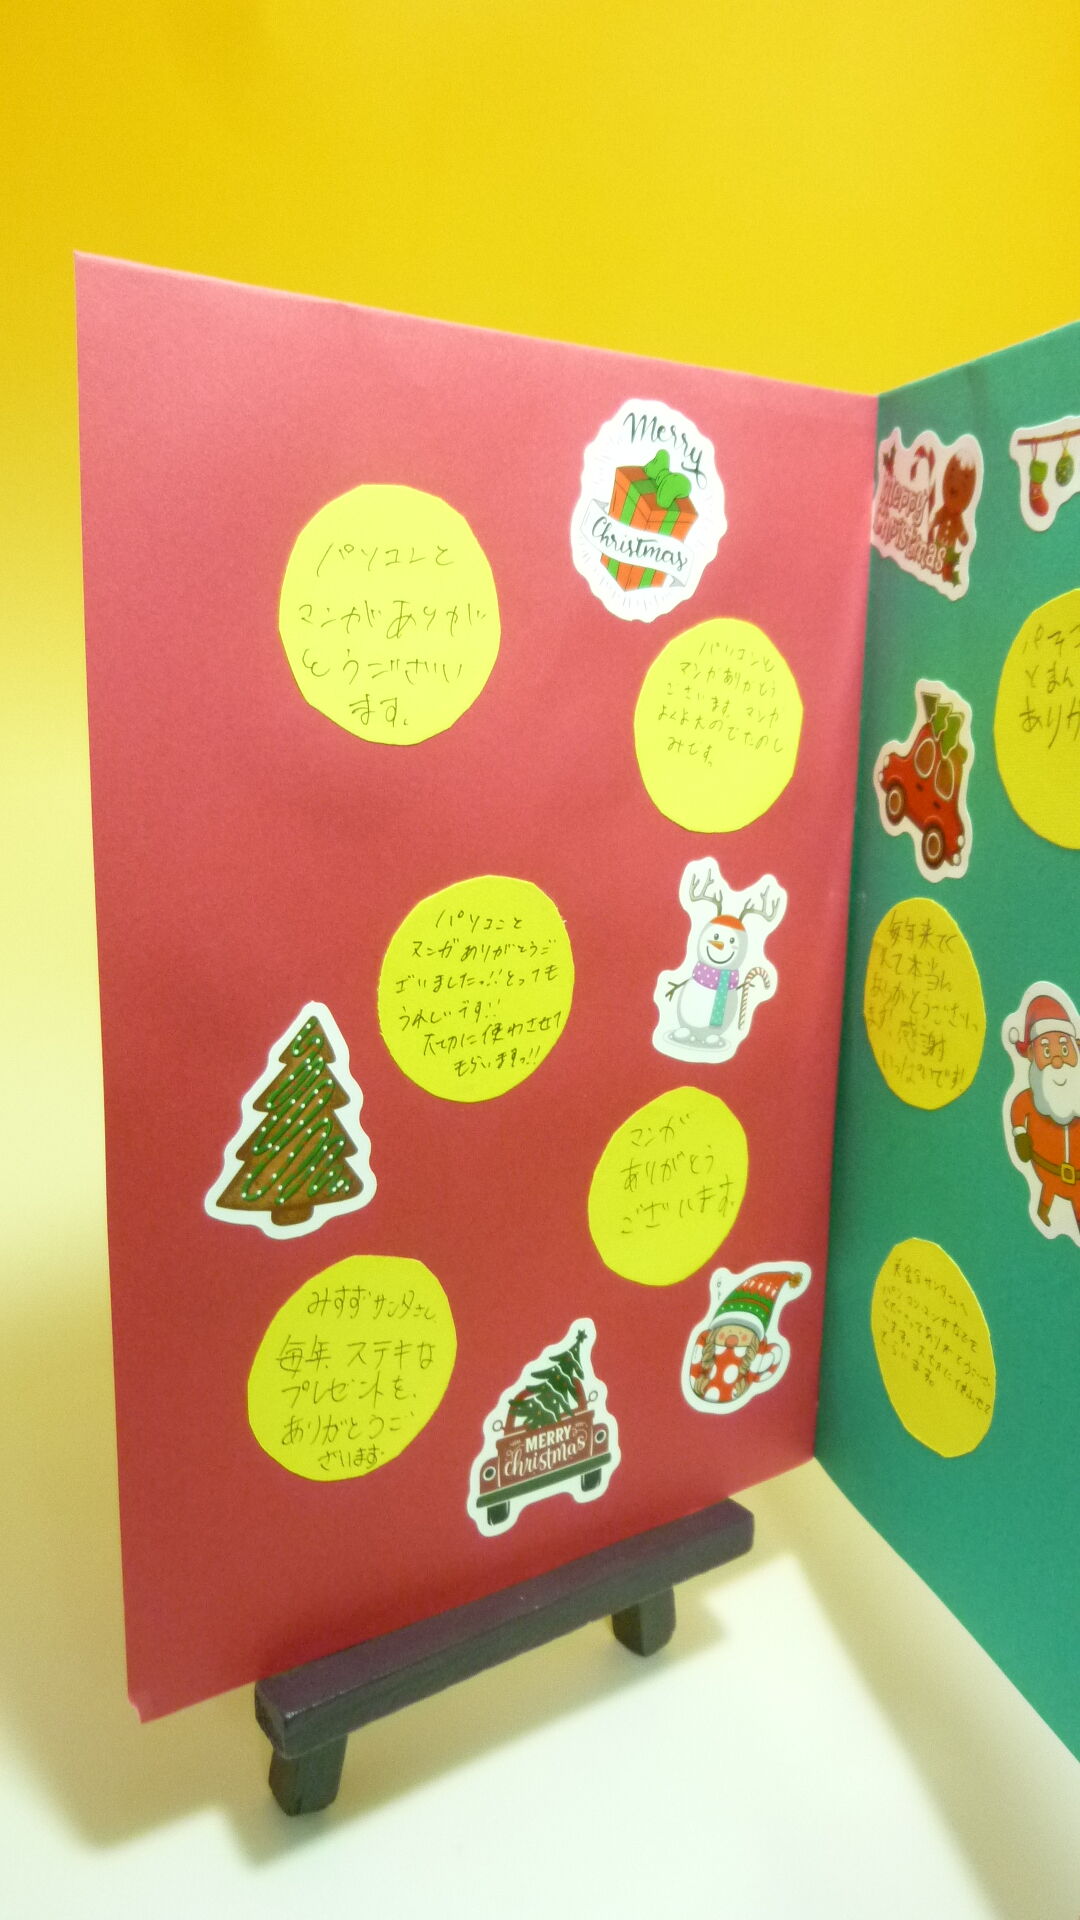 Merry
Christmas
パソコンと
マンガありが
とうござい
ます。
パソコンと
マンガありがとう
ございます。マンガ
よくよむのでたのし
みです。
パソコンと
マンガありがとうご
ざいました!!とっても
うれしいです!!
大切に使わさせて
もらいますっ!!
マンガ
ありがとう
ございます
みすずサンタさん
毎年 ステキな
プレゼントを、
ありがとうご
ざいます
MERRY
christmas
Happy
Christmas
とまん
ありが
毎年来てく
れて本当に
ありがとうござい
ます! 感謝
いっぱいです!
サンタさんへ